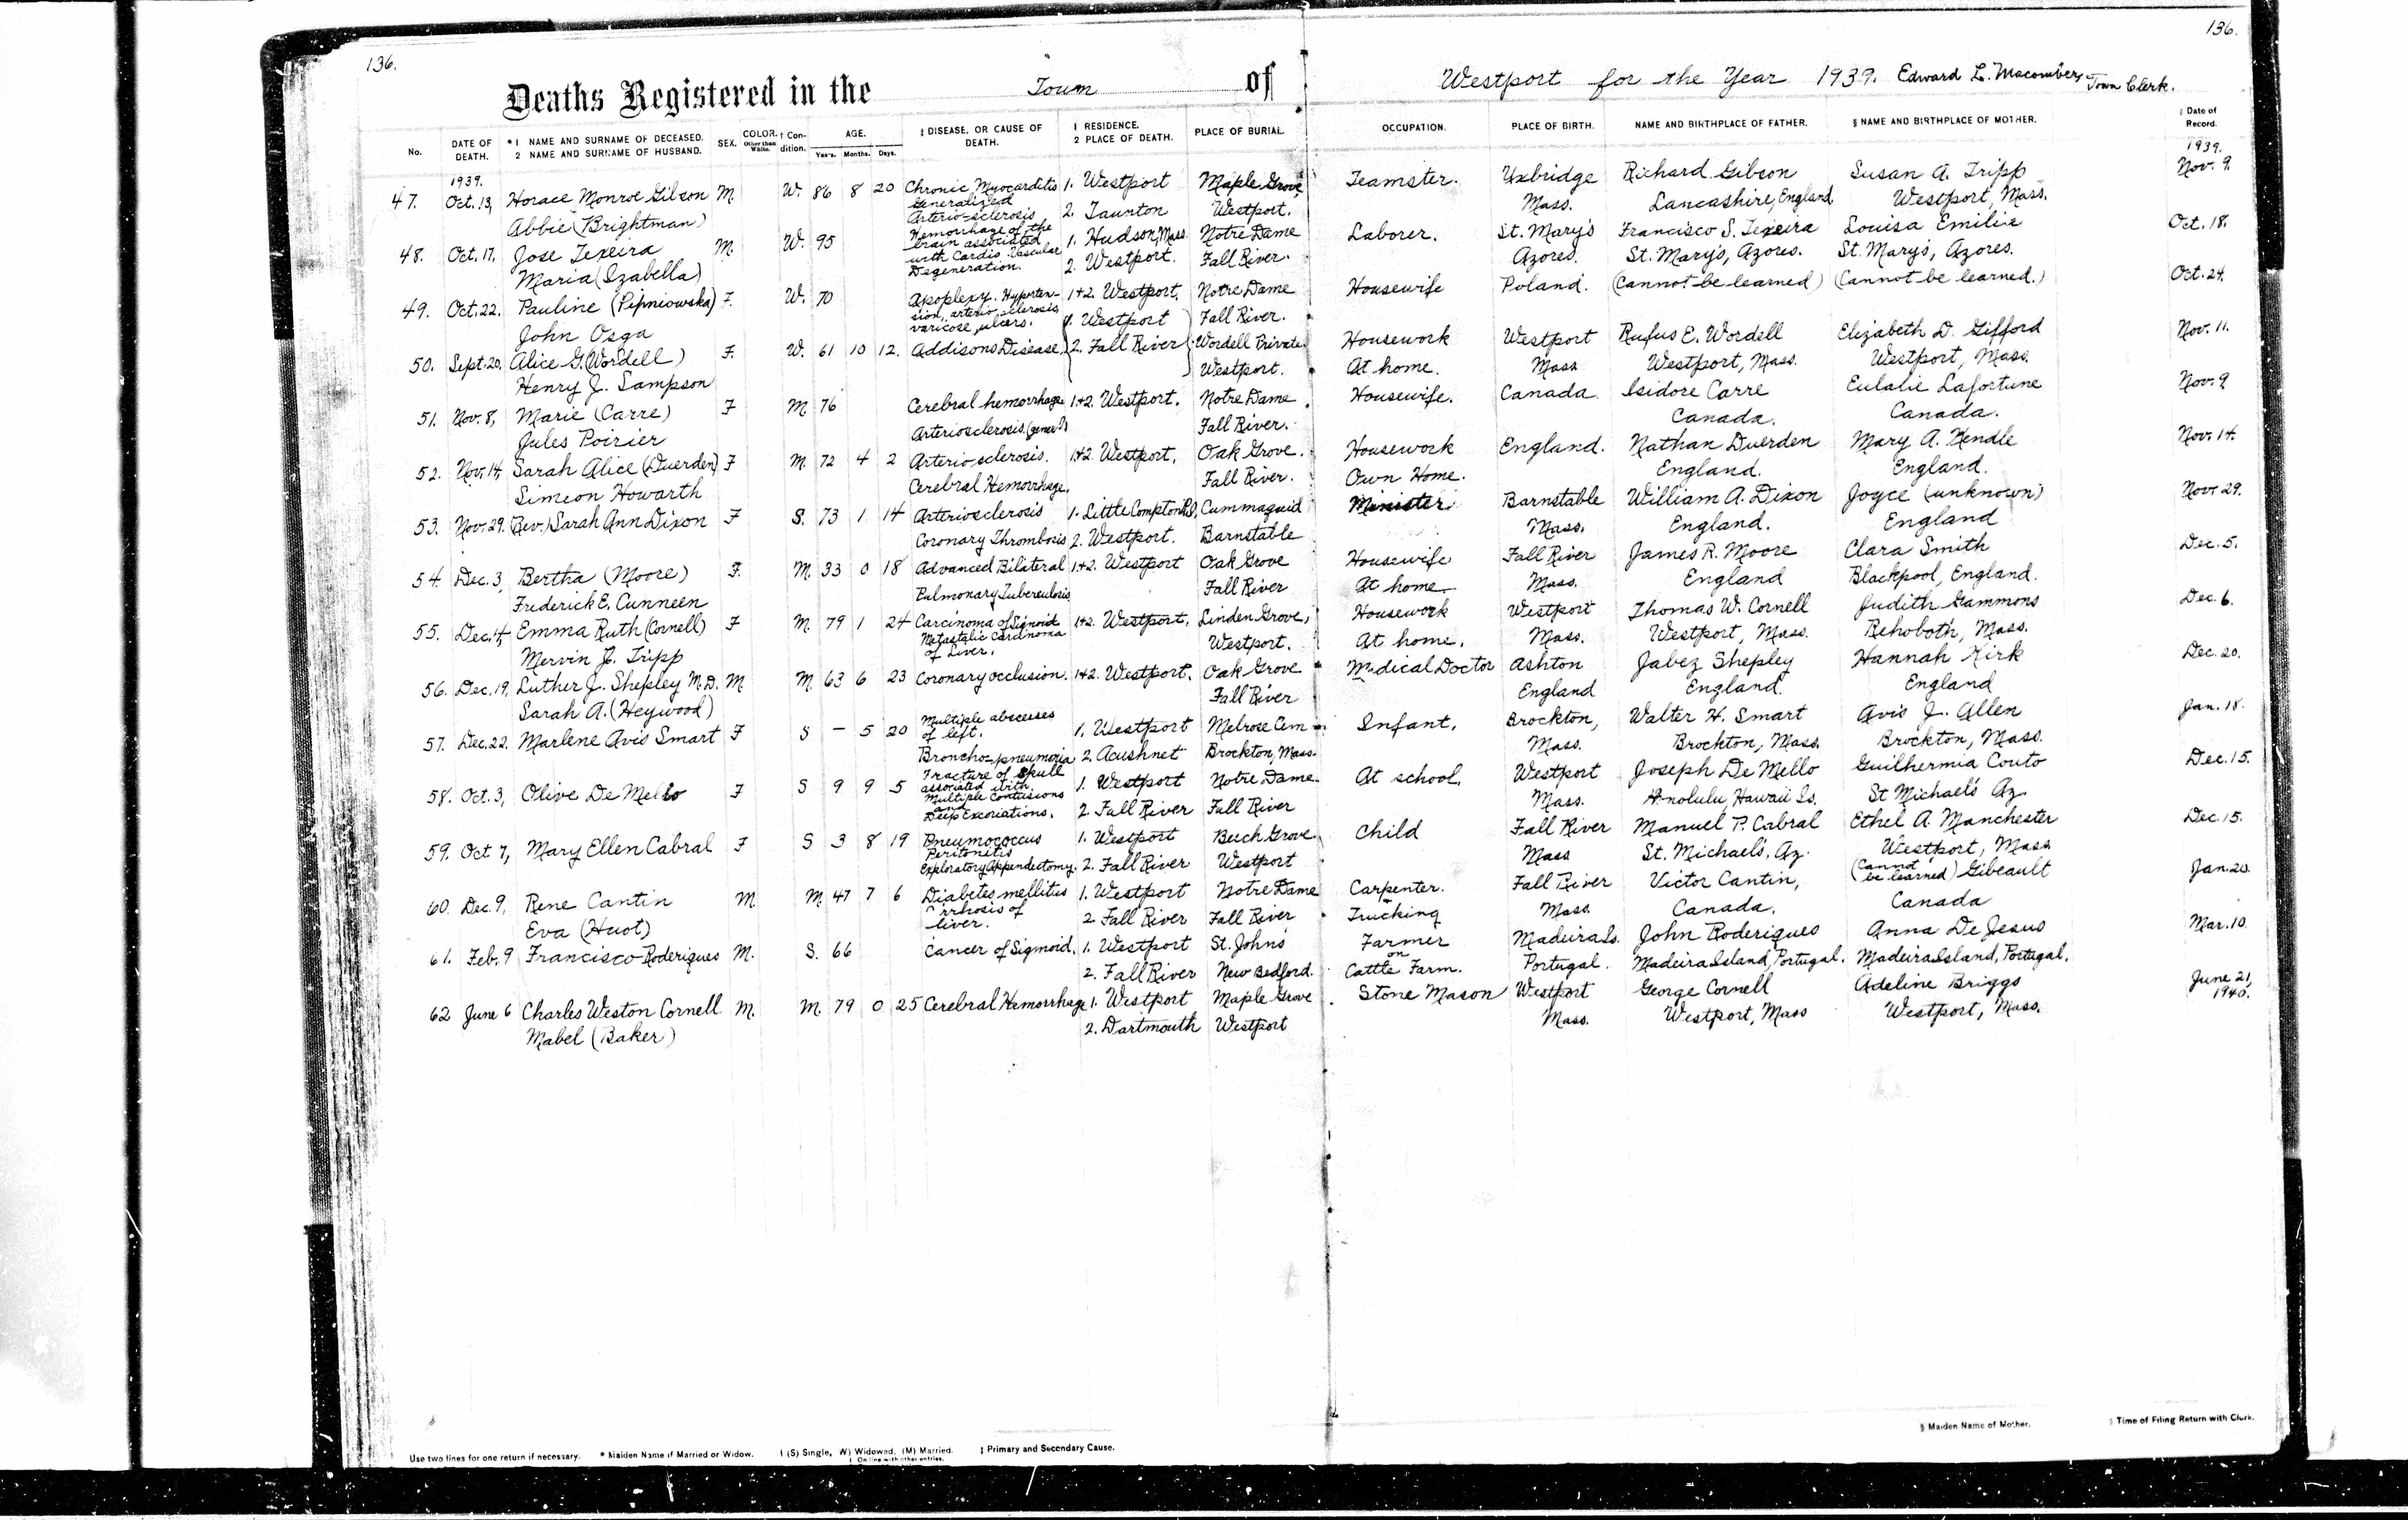 136.
136.
Deaths Registered in the Town of Westport for the Year 1939. Edward L. Macomber, Town Clerk.
No. DATE OF DEATH. * 1 NAME AND SURNAME OF DECEASED. 2 NAME AND SURNAME OF HUSBAND. SEX. COLOR. Other than White. † Condition. AGE. Years. Months. Days. ‡ DISEASE, OR CAUSE OF DEATH. 1 RESIDENCE. 2 PLACE OF DEATH. PLACE OF BURIAL. OCCUPATION. PLACE OF BIRTH. NAME AND BIRTHPLACE OF FATHER. § NAME AND BIRTHPLACE OF MOTHER. Date of Record.
1939. 1939.
47. Oct. 13, Horace Monroe Gibson M. W. 86 8 20 Chronic Myocarditis 1. Westport Maple Grove, Teamster. Uxbridge Richard Gibson Susan A. Tripp Nov. 9.
Abbie (Brightman) Generalized Arterio-sclerosis 2. Taunton Westport. Mass. Lancashire, England. Westport, Mass.
48. Oct. 17, Jose Texeira M. W. 95 Hemorrhage of the brain associated 1. Hudson, Mass. Notre Dame Laborer. St. Mary's Francisco S. Texeira Louisa Emilie Oct. 18.
Maria (Izabella) with Cardio-Vascular Degeneration. 2. Westport. Fall River. Azores. St. Mary's, Azores. St. Mary's, Azores.
49. Oct. 22. Pauline (Pipniowska) F. W. 70 Apoplexy. Hyperten- 1+2. Westport. Notre Dame Housewife Poland. (Cannot be learned) (Cannot be learned.) Oct. 24.
John Osga sion, arterio sclerosis, varicose ulcers. Fall River.
50. Sept. 20, Alice G. (Wordell) F. W. 61 10 12. Addisons Disease 1. Westport 2. Fall River Wordell Private. Housework Westport Rufus E. Wordell Elizabeth D. Gifford Nov. 11.
Henry J. Sampson Westport. At home. Mass Westport, Mass. Westport, Mass.
51. Nov. 8, Marie (Carre) F M. 76 Cerebral hemorrhage 1+2. Westport. Notre Dame Housewife. Canada. Isidore Carre Eulalie Lafortune Nov. 9
Jules Poirier Arteriosclerosis. Fall River. Canada. Canada.
52. Nov. 14, Sarah Alice (Duerden) F M. 72 4 2 Arteriosclerosis. 1+2. Westport, Oak Grove. Housework England. Nathan Duerden Mary A. Hendle Nov. 14.
Simeon Howarth Cerebral Hemorrhage. Fall River. Own Home. England. England.
53. Nov. 29. (Rev.) Sarah Ann Dixon F S. 73 1 14 Arteriosclerosis 1. Little Compton R.I. Cummaquid Minister Barnstable William A. Dixon Joyce (unknown) Nov. 29.
Coronary Thrombosis 2. Westport. Barnstable Mass. England. England
54. Dec. 3, Bertha (Moore) F. M. 33 0 18 Advanced Bilateral 1+2. Westport Oak Grove Housewife Fall River James R. Moore Clara Smith Dec. 5.
Frederick E. Cunneen Pulmonary Tuberculosis Fall River At home Mass. England Blackpool, England.
55. Dec. 4, Emma Ruth (Cornell) F M. 79 1 24 Carcinoma of Sigmoid 1+2. Westport, Linden Grove, Housework Westport Thomas W. Cornell Judith Gammons Dec. 6.
Mervin J. Tripp Metastatic Carcinoma of Liver. Westport. At home. Mass. Westport, Mass. Rehoboth, Mass.
56. Dec. 19, Luther J. Shepley M.D. M. M. 63 6 23 Coronary occlusion. 1+2. Westport. Oak Grove Medical Doctor Ashton Jabez Shepley Hannah Kirk Dec. 20.
Sarah A. (Heywood) Fall River England England. England
57. Dec. 22. Marlene Avis Smart F S - 5 20 Multiple abscesses of left. 1. Westport Melrose Cem Infant. Brockton, Walter H. Smart Avis J. Allen Jan. 18.
Broncho-pneumonia 2. Acushnet Brockton, Mass. Mass. Brockton, Mass. Brockton, Mass.
58. Oct. 3, Olive De Mello F S 9 9 5 Fracture of skull associated with 1. Westport Notre Dame At school. Westport Joseph De Mello Guilhermia Couto Dec. 15.
Multiple Contusions and Deep Excoriations. 2. Fall River Fall River Mass. Honolulu, Hawaii Is. St Michael's Az.
59. Oct 7, Mary Ellen Cabral F S 3 8 19 Pneumococcus 1. Westport Beech Grove Child Fall River Manuel P. Cabral Ethel A. Manchester Dec. 15.
Peritonitis Exploratory Appendectomy. 2. Fall River Westport Mass St. Michael's, Az. Westport, Mass
60. Dec. 9, Rene Cantin M. M. 47 7 6 Diabetes mellitus 1. Westport Notre Dame Carpenter. Fall River Victor Cantin, (Cannot be learned) Gibeault Jan. 20.
Eva (Huot) Cirrhosis of liver. 2. Fall River Fall River Trucking Mass. Canada. Canada
61. Feb. 9 Francisco Roderigues M. S. 66 Cancer of Sigmoid. 1. Westport St. Johns Farmer Madeira Is. John Roderigues Anna De Jesus Mar. 10.
2. Fall River New Bedford. on Cattle Farm. Portugal. Madeira Island, Portugal. Madeira Island, Portugal.
62 June 6 Charles Weston Cornell M. M. 79 0 25 Cerebral Hemorrhage 1. Westport Maple Grove Stone Mason Westport George Cornell Adeline Briggs June 21, 1940.
Mabel (Baker) 2. Dartmouth Westport Mass. Westport, Mass Westport, Mass.
Use two lines for one return if necessary. * Maiden Name if Married or Widow. † (S) Single, (W) Widowed, (M) Married. ‡ Primary and Secondary Cause. § Maiden Name of Mother. Time of Filing Return with Clerk.